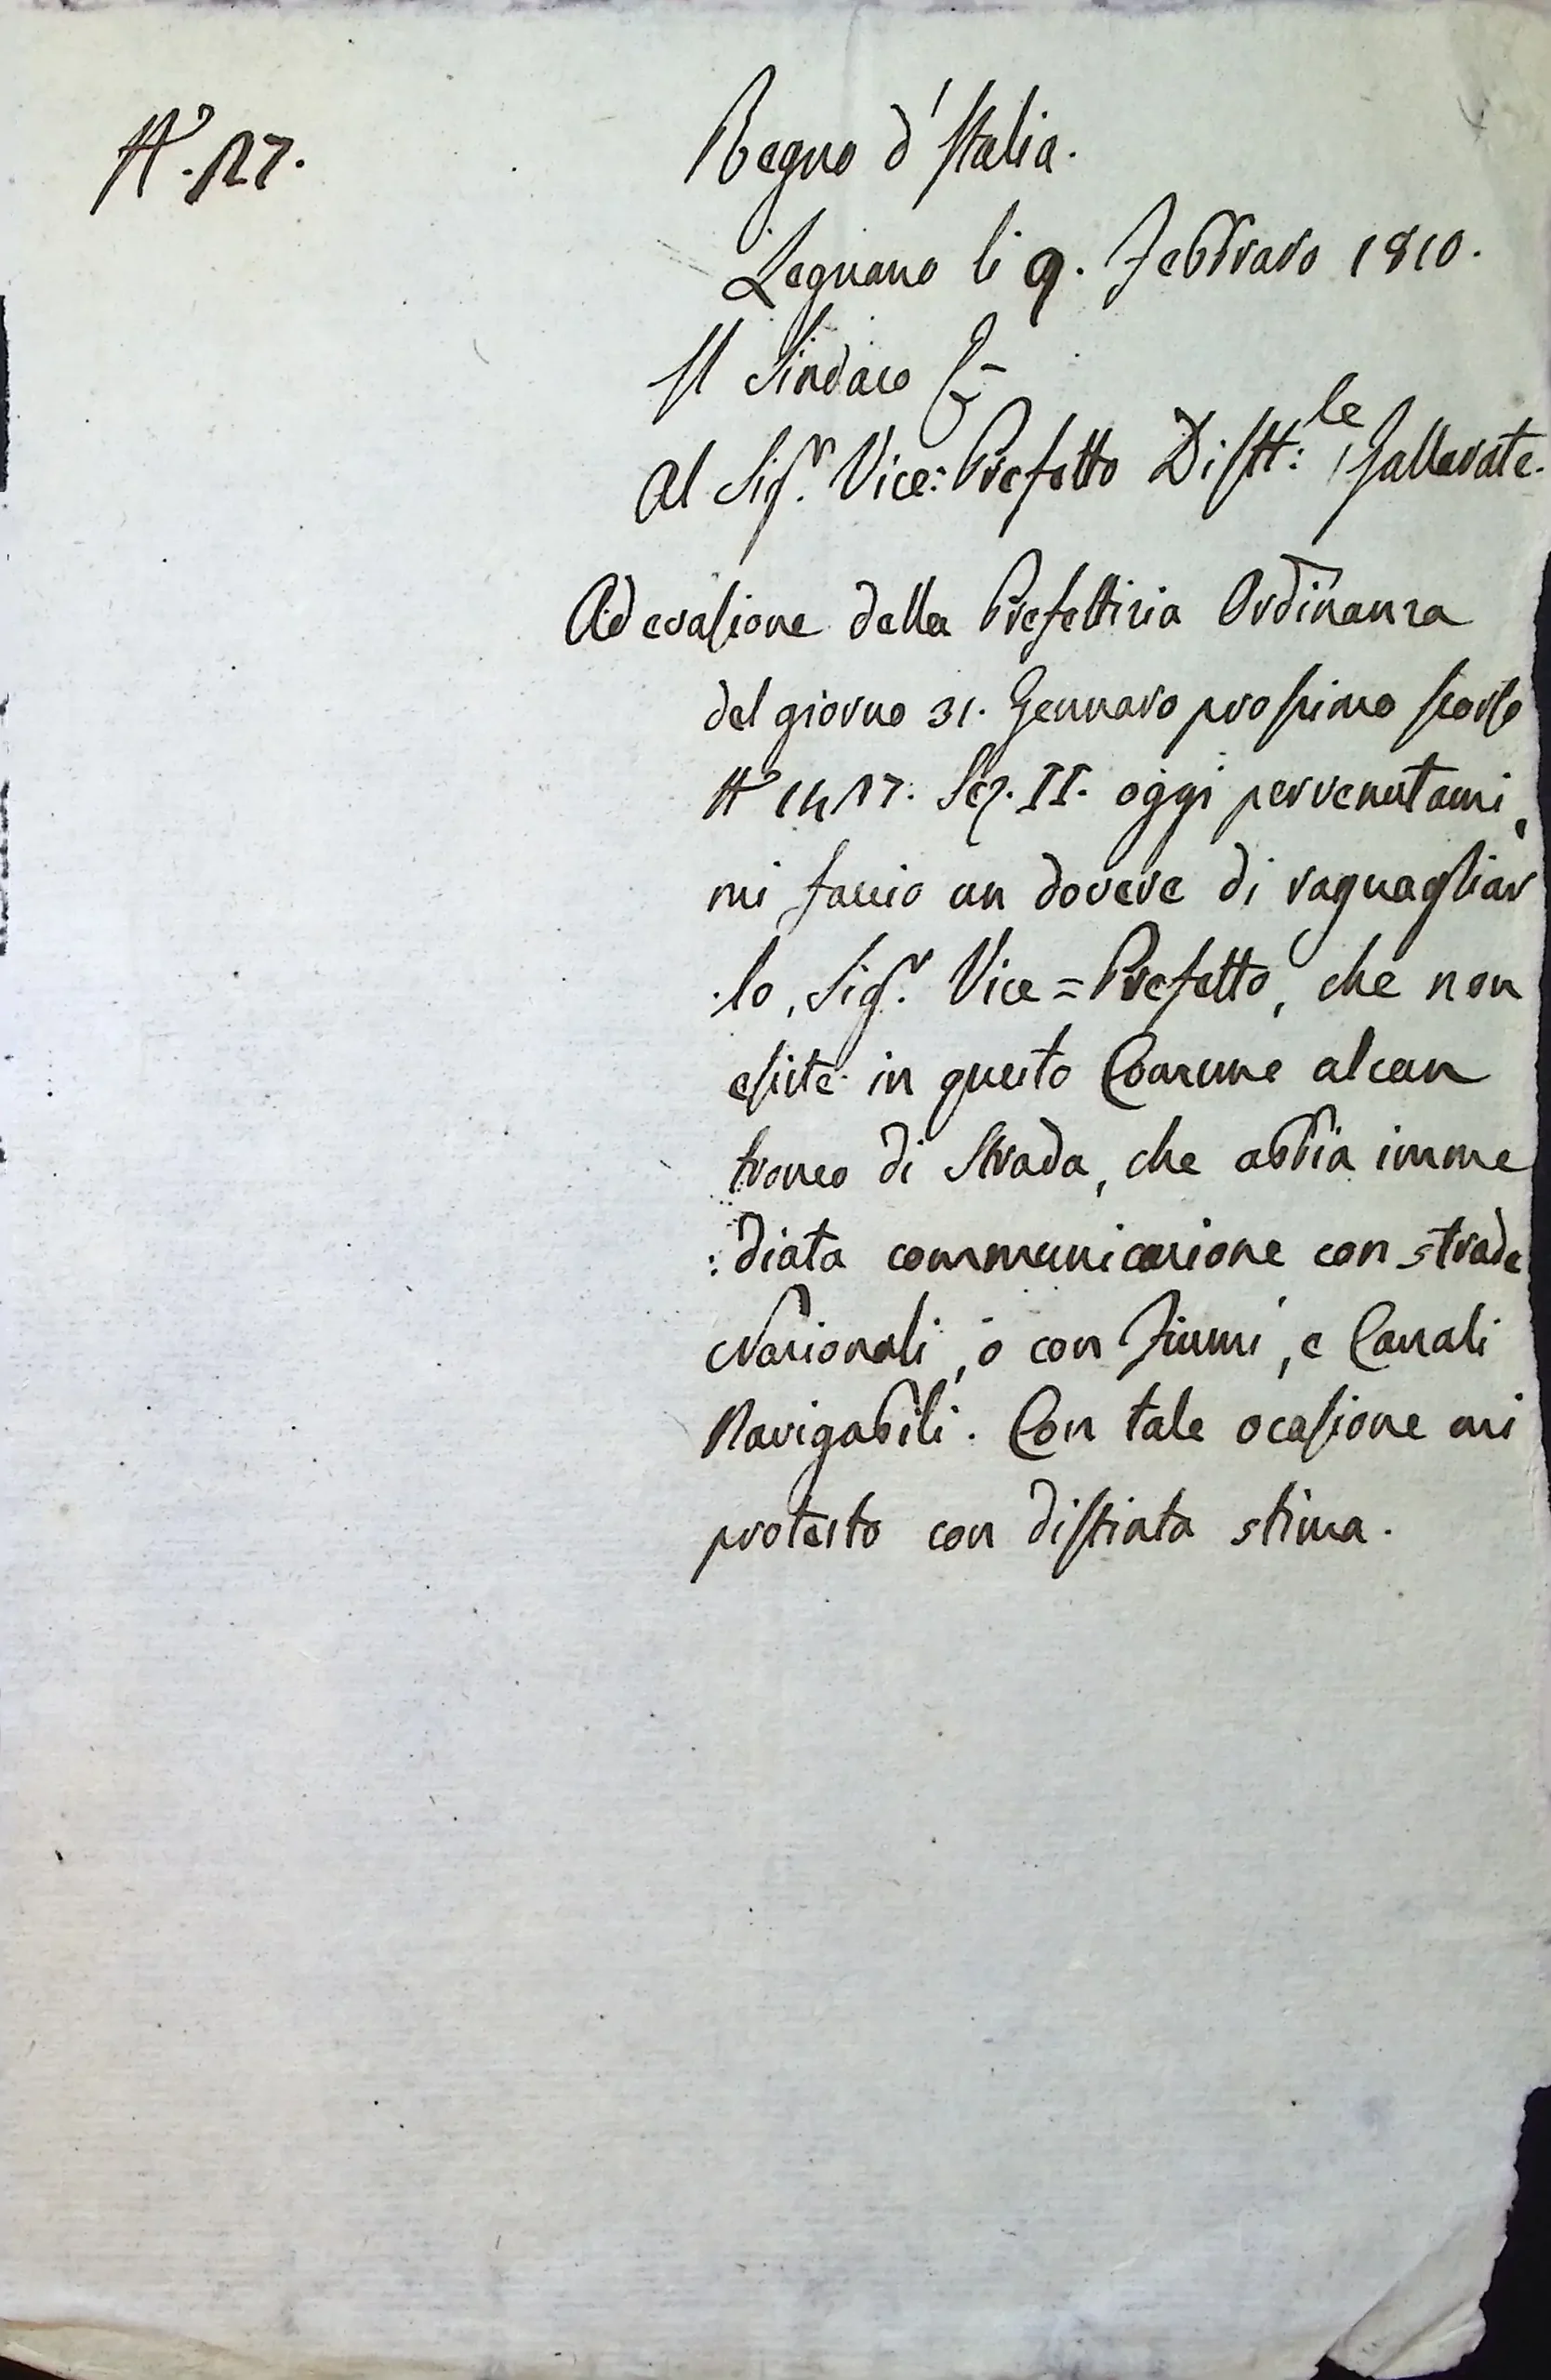 N.° 127.
Regno d'Italia.
Legnano li 9. Febbraro 1810.
Il Sindaco
Al Sig.r Vice: Prefetto Distt:le Gallarate.
Ad evasione della Prefettizia Ordinanza
del giorno 31. Gennaro prossimo scorso
N.° Sez. II. oggi pervenutami,
mi faccio un dovere di raguagliar
lo, Sig.r Vice=Prefetto, che non
esiste in questo Comune alcun
tronco di Strada, che abbia imme
:diata communicazione con strade
Nazionali, o con Fiumi, e Canali
Navigabili. Con tale ocasione mi
protesto con distinta stima.